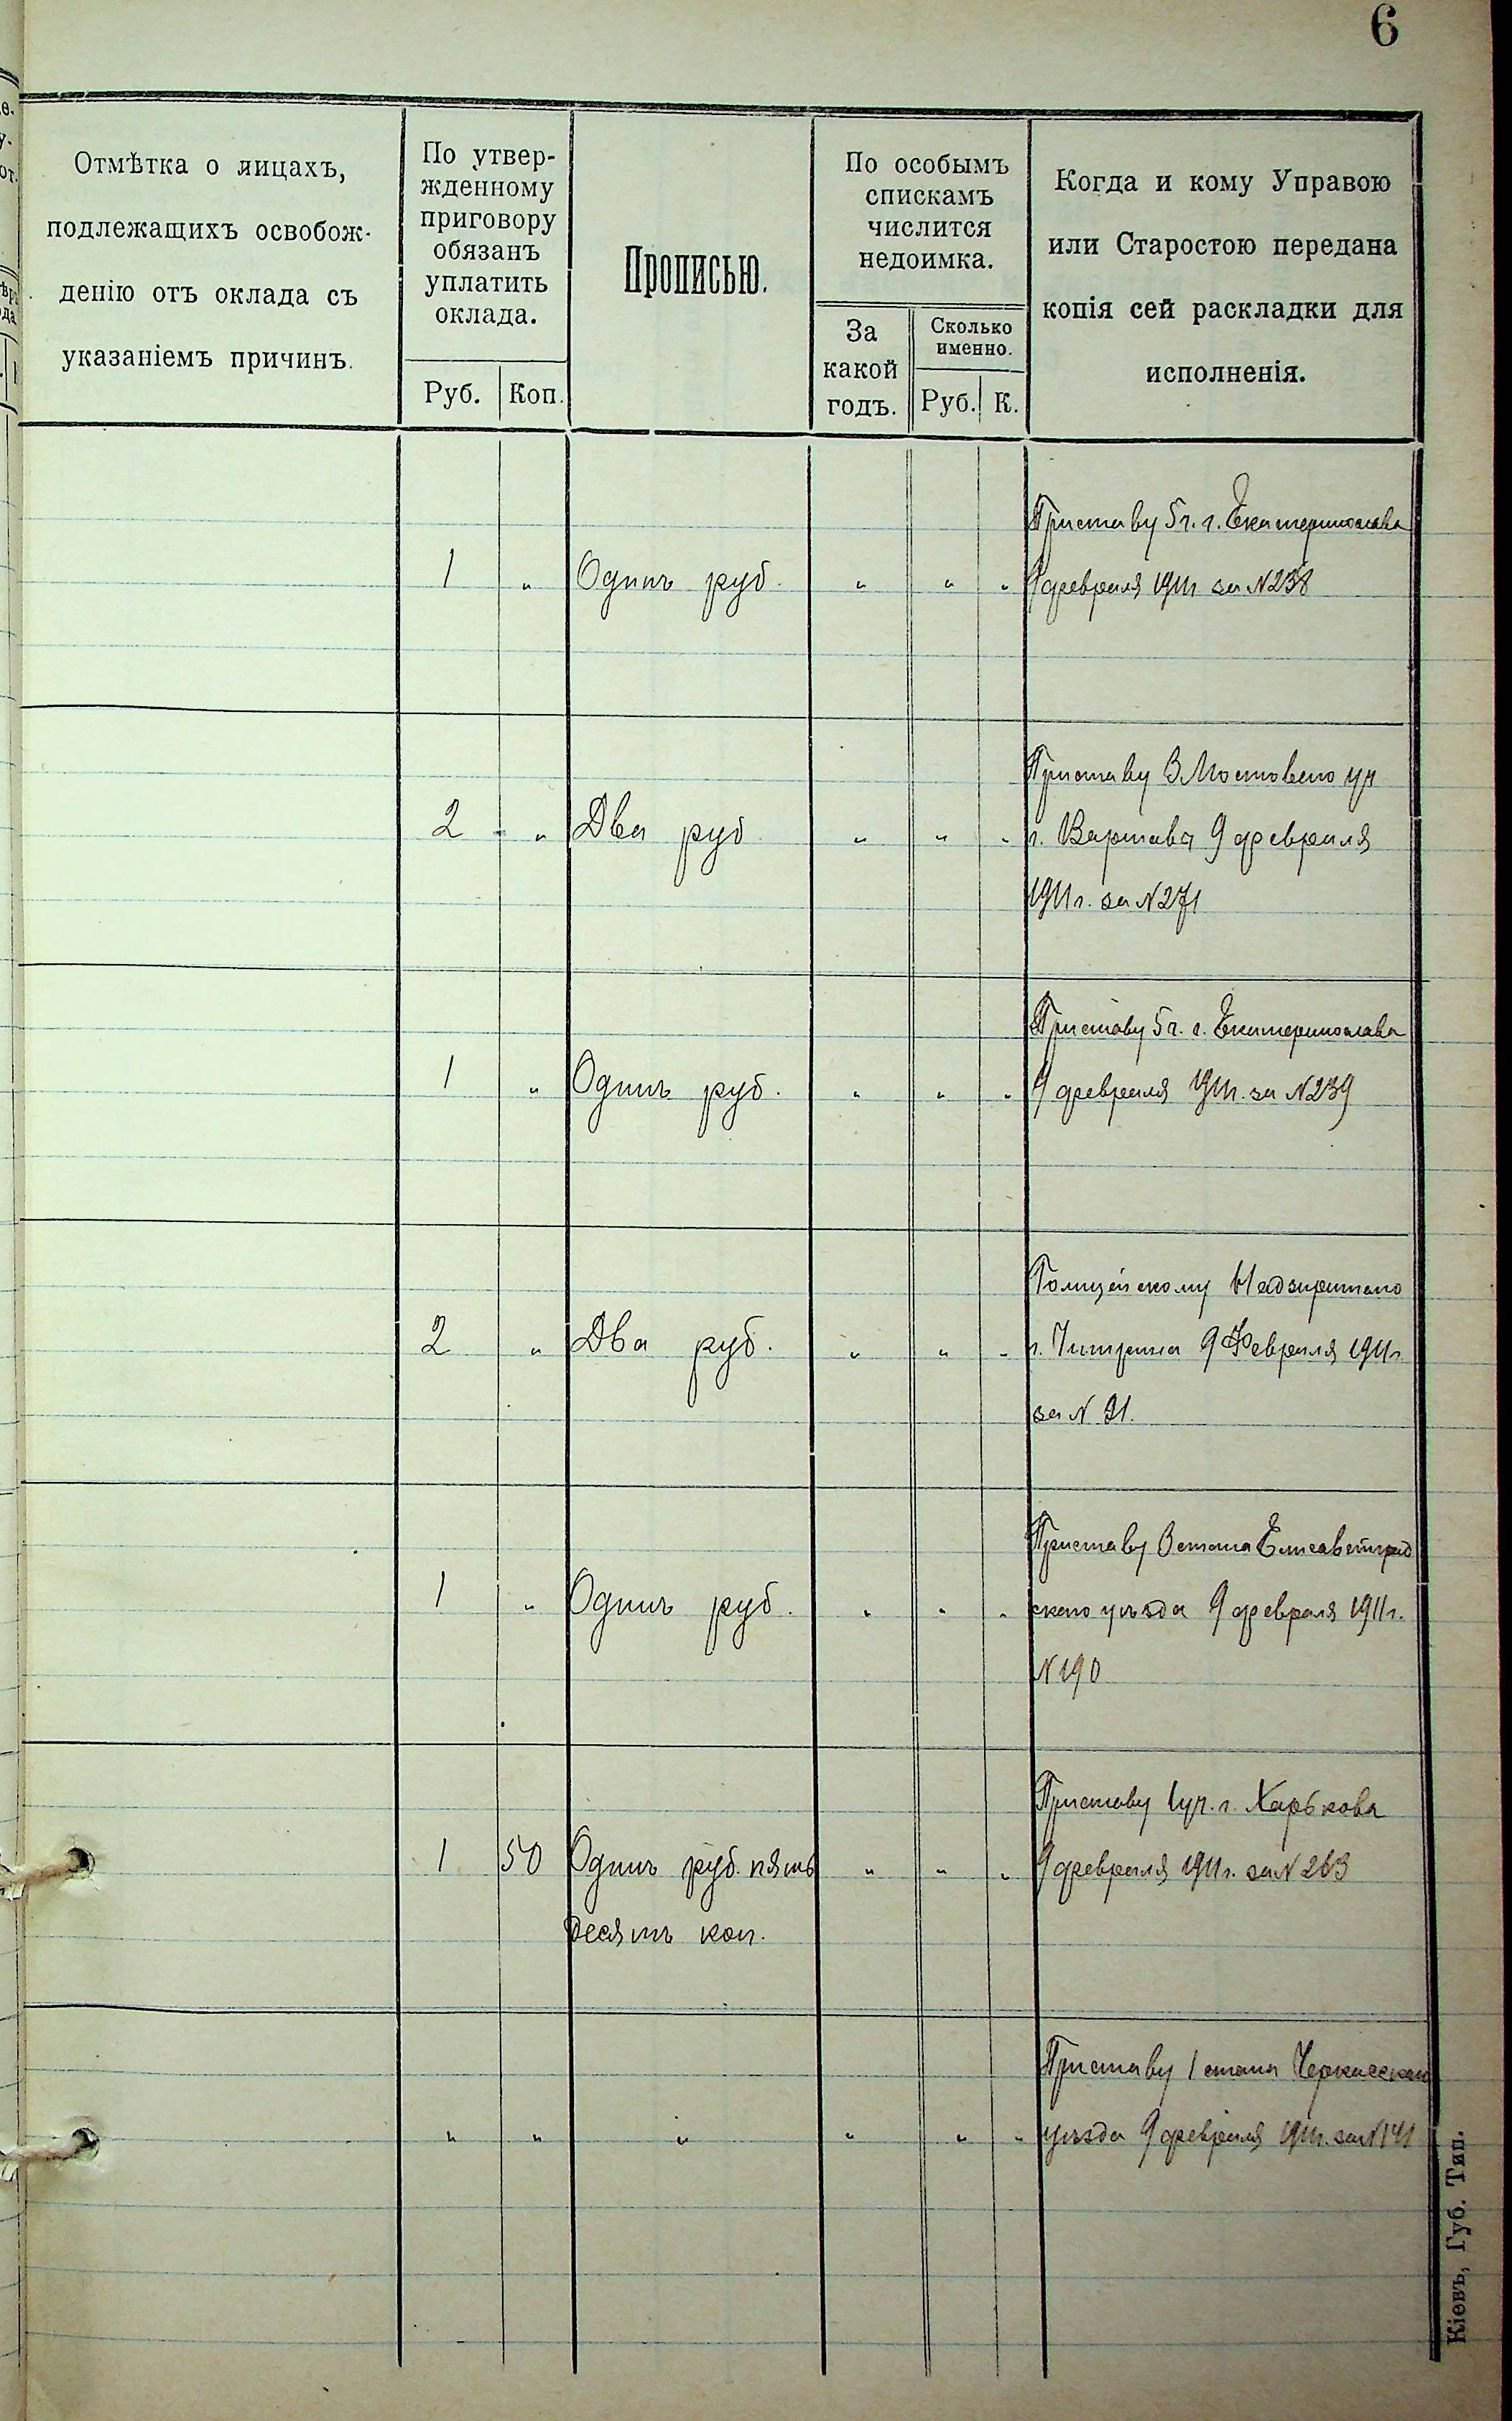 6
Отмѣтка о лицахъ,
подлежащихъ освобож-
денію отъ оклада съ
указаніемъ причинъ.
По утвер-
жденному
приговору
обязанъ
уплатить
оклада.
Руб. Коп.
Прописью.
По особымъ
спискамъ
числится
недоимка.
За
какой
годъ.
Сколько
именно.
Руб. К.
Когда и кому Управою
или Старостою передана
копія сей раскладки для
исполненія.
Приставу 5 ч. г. Екатеринослава
1 " Одинъ руб. " " " 9 февраля 1911 за N 238
Приставу 3 Мостовего уч
2 " Два руб " " " г. Варшава 9 февраля
1911 г. за N 271
Приставу 5 ч. г. Екатеринослава
1 " Одинъ руб. " " " 9 февраля 1911. за N 239
Полицейскому Надзирателю
2 " Два руб. " " " г. Чигрина 9 Февраля 1911 г
за N 31.
Приставу 3 стана Елисаветград
1 " Одинъ руб. " " " скаго уѣзда 9 февраля 1911 г.
N 190
Приставу 1 уч. г. Харькова
1 50 Одинъ руб. пять " " " 9 февраля 1911 г. за N 263
десятъ коп.
Приставу 1 стана Черкасскаго
" " " " " " уѣзда 9 февраля 1911 г. за N 141
Кіевъ, Губ. Тип.